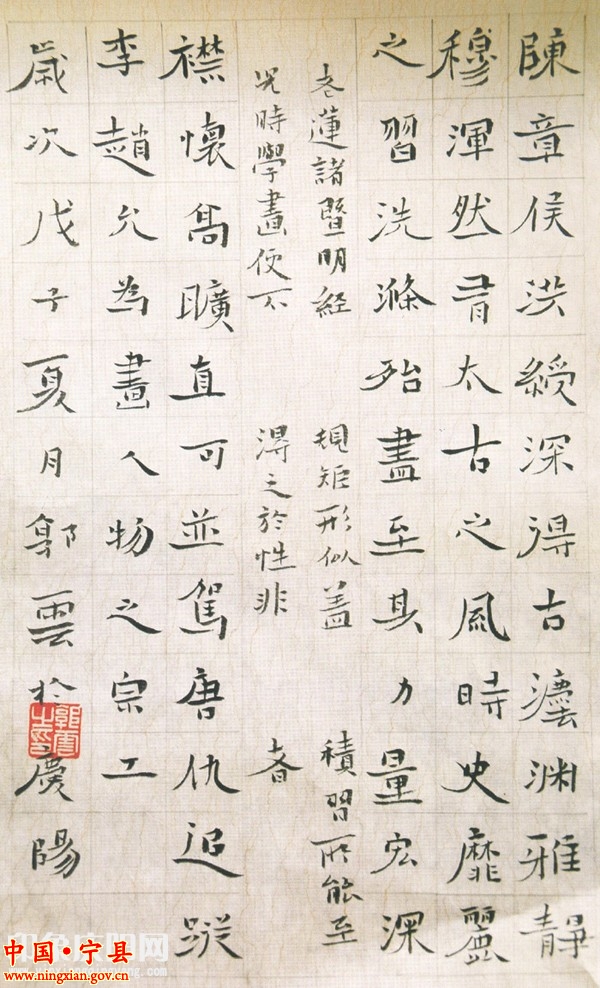 陳章侯洪綬深得古灋渊雅靜
穆渾然有太古之風時史靡麗
之習洗滌殆盡至其力量宏深
老蓮諸暨明經
兒時學畫便不
規矩形似蓋
得之於性非
積習所能至
者
襟懷高曠直可並駕唐仇追蹤
李趙允為畫人物之宗工
歲次戊子夏月郭雲於慶陽
郭雲之印
中国·宁县
www.ningxian.gov.cn